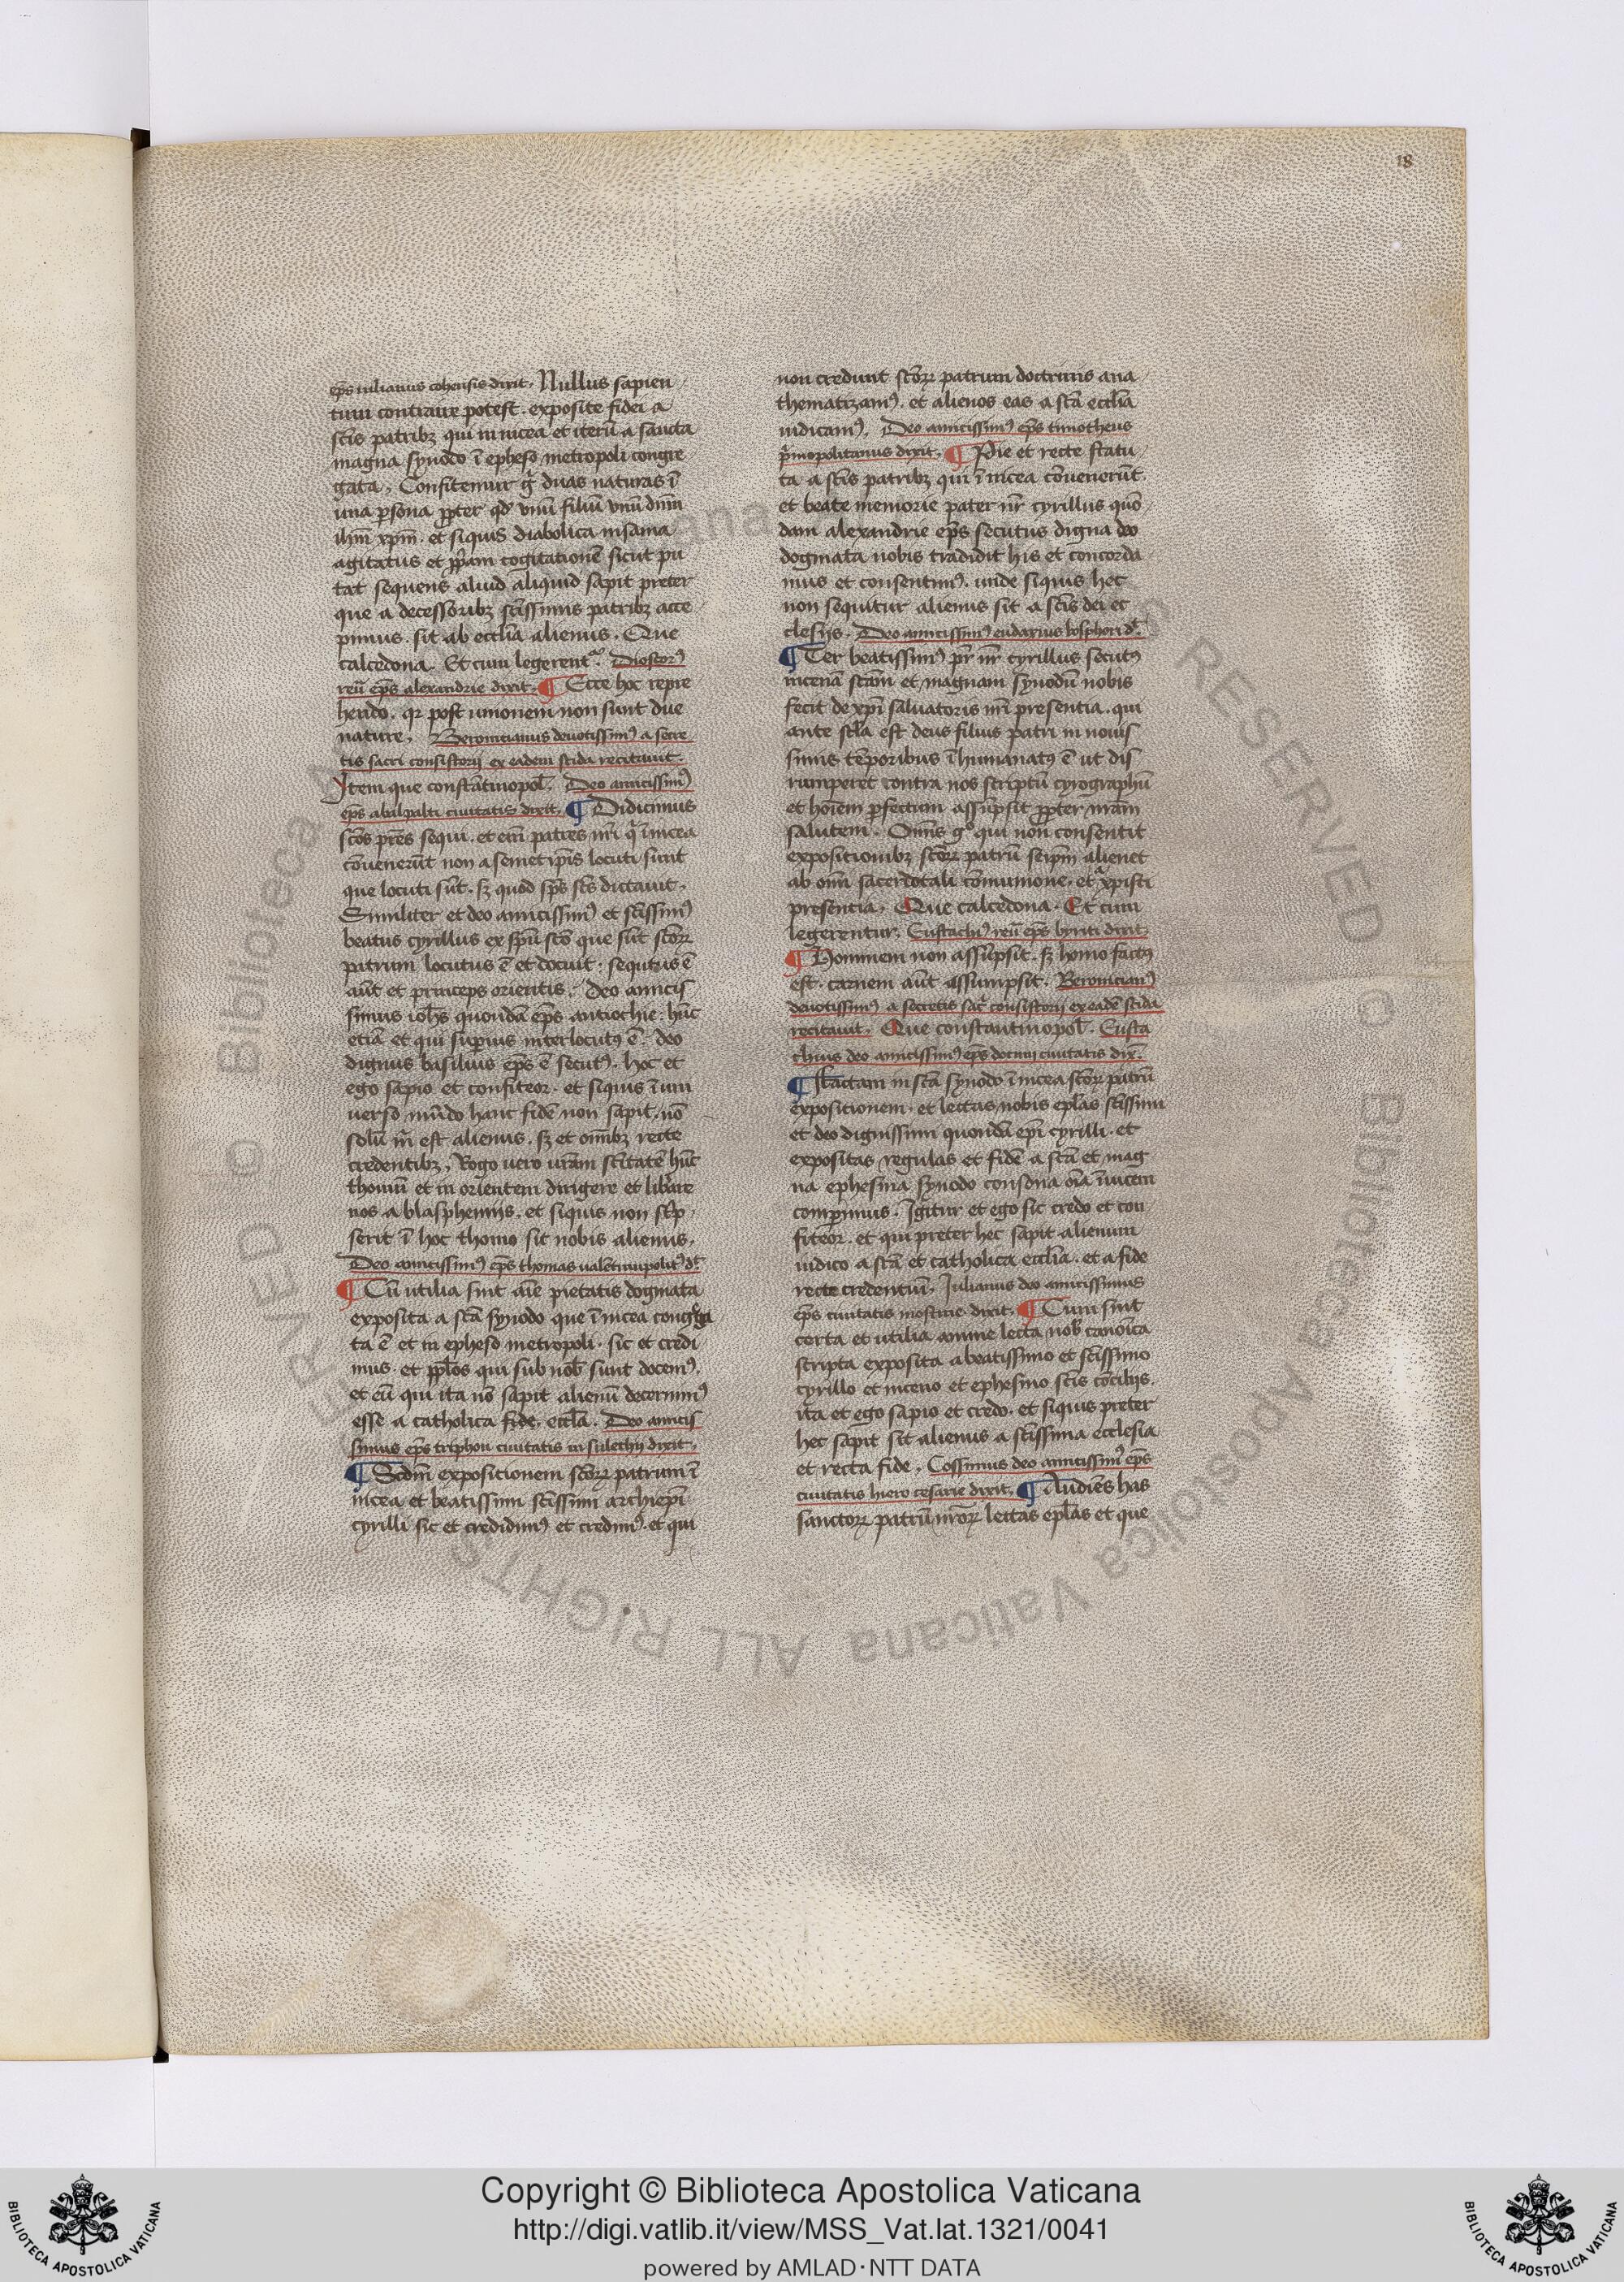 18
ep̄s iulianus cohensis dixit. Nullus sapien
tum contraire potest. exposite fidei a
scīs patribꝫ qui in nicea et iterū a sancta
magna synodo ī epheso metropoli congre
gata. Confitemur gͦ duas naturas ī
una ꝑsona ꝓpter qd̄ vnū filiū vnū dn̄m
ihm̄ xp̄m. et siquis diabolica insania
agitatus et ꝓp̄am cogitationē sicut pu
tat sequens aliud aliquid sapit preter
que a decessoribꝫ scīssimis patribꝫ acce
pimus. sit ab eccl̄ia alienus. Que
calcedona. Et cum legerent᷑. Dioscorꝰ
reū ep̄s alexandrie dixit. ¶ Ecce hoc repre
hendo. qr post unionem non sunt due
nature. Beronicianus deuotissimꝰ a secre
tis sacri consistorii ex eadem scida recitauit.
Item que constātinopol̄. Deo amicissimꝰ
ep̄s abilpalti ciuitatis dixit. ¶ Didicimus
scōs pr̄es sequi. et eni patres nr̄i q̄ ī nicea
cōuenerūt non a semetip̄is locuti sunt
que locuti sūt. sꝫ quod sp̄s scs̄ dictauit.
Similiter et deo amicissimꝰ et scīssimꝰ
beatus cyrillus ex sp̄u scō que sūt scōꝝ
patrum locutus ē et docuit. sequtus ē
aūt et princeps orientis. deo amicis
simus ioh̄s quondā ep̄s antiochie. hūc
etiā et qui suꝑius interlocutꝰ ē. deo
dignus basilius ep̄s ē secutꝰ. hoc et
ego sapio et confiteor. et siquis ī uni
uerso mūdo hanc fidē non sapit. nō
solū m̄ est alienus. sꝫ et om̄ibꝫ recte
credentibꝫ. Rogo uero ur̄am scītatē hūc
thomū et in orientem dirigere et lib̄are
nos a blasphemiis. et siquis non scp̄
serit ī hoc thomo sit nobis alienus.
Deo amicissimꝰ ep̄s thomas ualētinupolitꝰ d̄t
¶ Cū utilia sint aīe pietatis dogmata
exposita a scā synodo que ī nicea cong̃ga
ta ē et in epheso metropoli. sic et credi
mus. et ppl̄os qui sub nob̄ sunt docemꝰ.
et eū qui ita nō sapit alienū decernimꝰ
esse a catholica fide. eccl̄a. Deo amicis
simus ep̄s triphon ciuitatis in sulechii dixit.
¶ Scdm̄ expositionem scōꝝ patrum ī
nicea et beatissimi scīssimi archiep̄i
cyrilli sic et credidimꝰ et credimꝰ. et qui
non credunt scōꝝ patrum doctrinis ana
thematizamꝰ. et alienos eas a scā eccl̄ia
iudicamꝰ. Deo amicissimꝰ ep̄s timotheus
p̄mopolitanus dixit. ¶ Pie et recte statu
ta a scīs patribꝫ qui ī nicea cōuenerūt.
et beate memorie pater nr̄ cyrillus quō
dam alexandrie ep̄s secutus digna deo
dogmata nobis tradidit his et concorda
mus et consentimꝰ. unde siquis hec
non sequitur alienus sit a scīs dei ec
clesijs. Deo amicissimꝰ eudoxius bosphori d̄t.
¶ Ter beatissimꝰ pr̄ nr̄ cyrillus secutꝰ
nicenā scām et magnam synodū nobis
fecit de xp̄i saluatoris nr̄i presentia. qui
ante scl̄a est deus filius patri in nouis
simis tēporibus īhumanatꝰ ē ut dis
rumperet contra nos scriptū cyrographū
et hoīem ꝑfectum assūpsit ꝓpter nr̄am
salutem. Omīs gͦ qui non consentit
expositionibꝫ scōꝝ patrū seip̄m alienet
ab om̄i sacerdotali cōmunione. et a xpisti
presencia. Que calcedona. Et cum
legerentur. Eustachiꝰ reū ep̄s byriti dixit
¶ Hominem non assūpsit. sꝫ homo factꝰ
est. carnem aūt assumpsit. Beronicianꝰ
deuotissimꝰ a secretis sacͥ consistorii ex eadē scida
recitauit. Que constantinopol̄. Eusta
thius deo amicissimꝰ ep̄s docimi ciuitatis dix̄.
¶ Factam in scā synodo ī nicea scōꝝ patrū
expositionem. et lectas nobis ep̄las scīssimi
et deo dignissimi quondā ep̄i cyrilli. et
expositas regulas et fidē a scā et mag
na ephesina synodo consona oīa īuicem
comꝑimus. Igitur et ego sic credo et con
fiteor. et qui preter hec sapit alienum
iudico a scā et catholica eccl̄ia. et a fide
recte credentium. Iulianus deo amicissimus
ep̄s ciuitatis mostinie dixit. ¶ Cum sint
certa et utilia anime lecta nob̄ canonica
scripta exposita a beatissimo et scīssimo
cyrillo et niceno et ephesino scīs cōcilijs.
ita et ego sapio et credo. et siquis preter
hec sapit sit alienus a scīssima ecclesia
et recta fide. Cossimus deo amicissimꝰ ep̄s
ciuitatis hiero cesarie dixit. ¶ Audiēs has
sanctoꝝ patrū nr̄oꝝ lectas ep̄las et que
Copyright © Biblioteca Apostolica Vaticana
http://digi.vatlib.it/view/MSS_Vat.lat.1321/0041
powered by AMLAD·NTT DATA